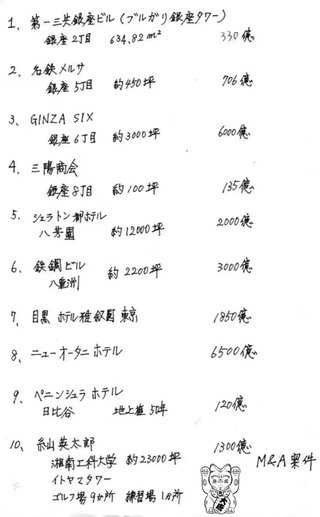 1、第一三共銀座ビル(ブルガリ銀座タワー)
銀座2丁目 634.82m² 330億
2、名鉄メルサ
銀座5丁目 約450坪 706億
3、GINZA SIX
銀座6丁目 約3000坪 6000億
4、三陽商会
銀座8丁目 約100坪 135億
5、シェラトン都ホテル 2000億
八芳園 約12000坪
6、鉄鋼ビル 3000億
八重洲 約2200坪
7、目黒 ホテル雅叙園 東京 1850億
8、ニューオータニホテル 6500億
9、ペニンシュラ ホテル
日比谷 地上権 50年 120億
10、糸山英太郎 1300億
湘南工科大学 約23000坪 M&A案件
イトヤマタワー
ゴルフ場 9カ所 練習場 1カ所